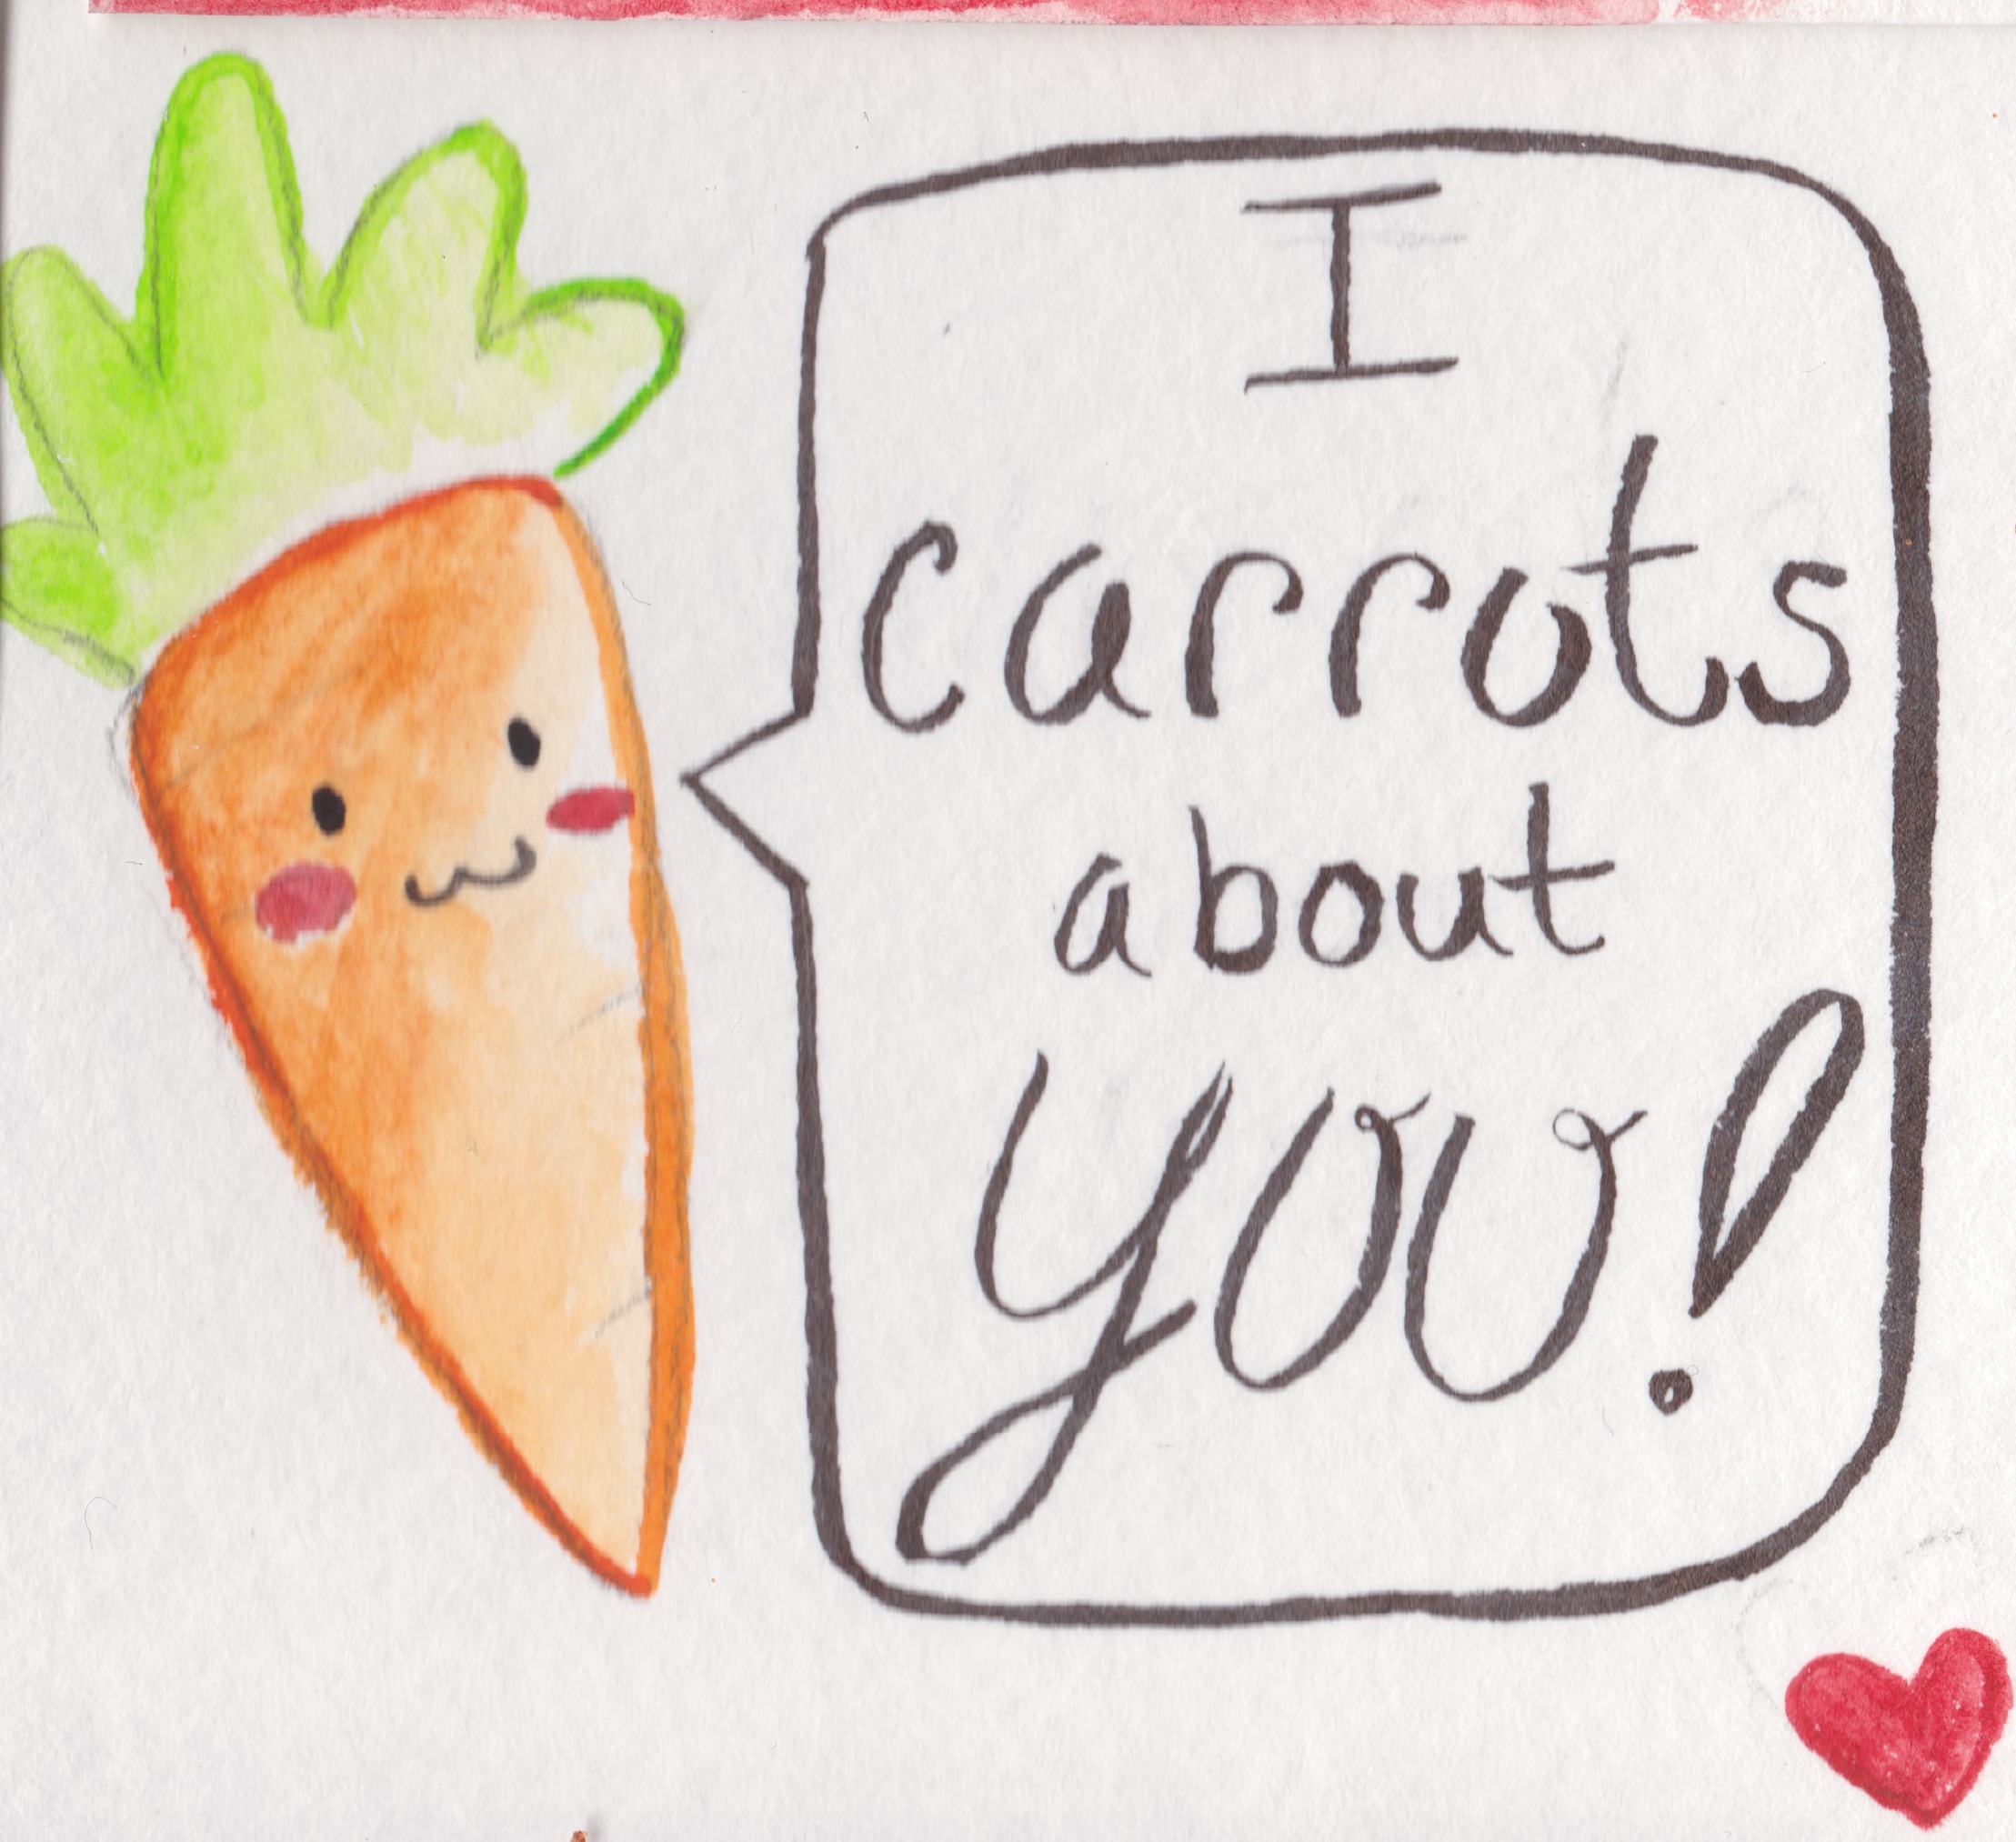 I
carrots
about
you!